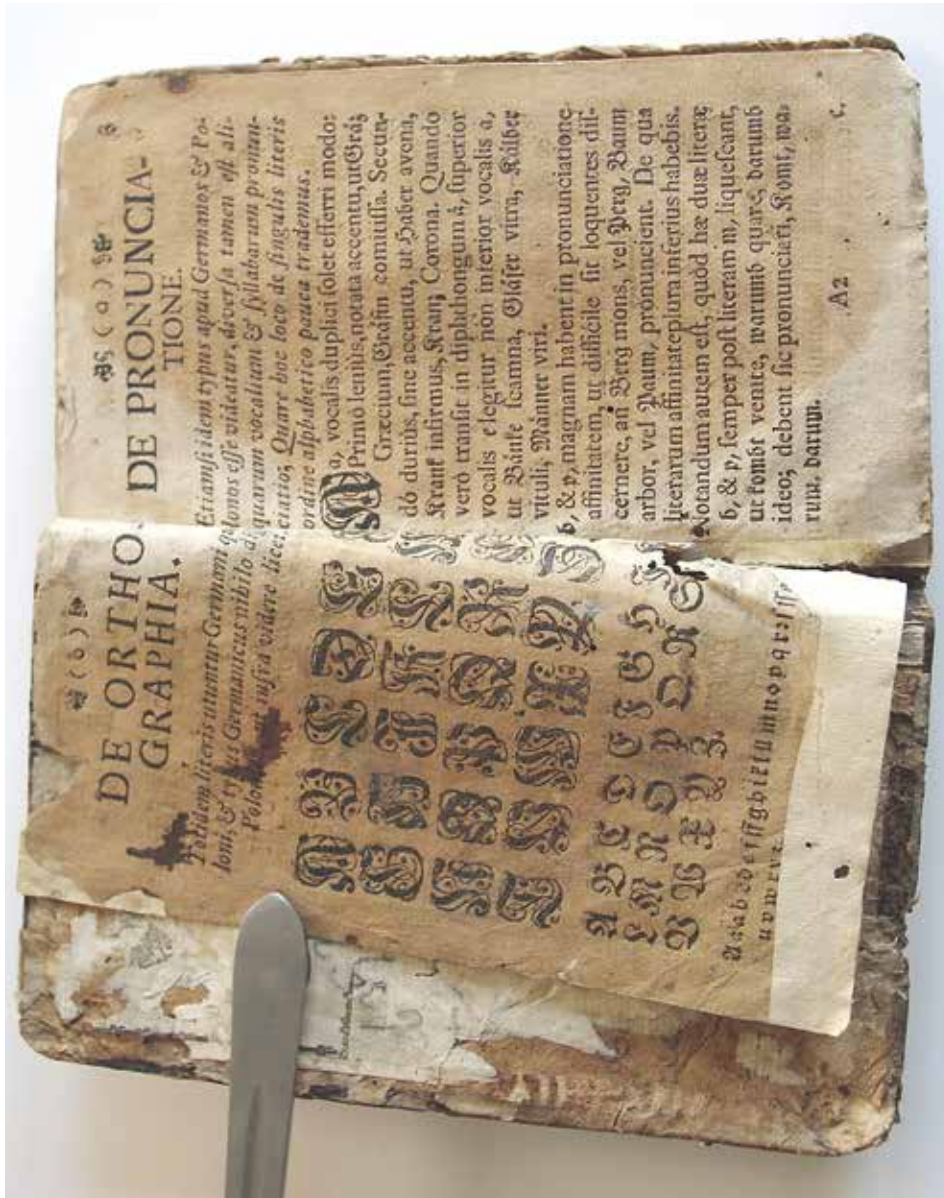 ( o )
DE ORTHO
GRAPHIA.
Totidem literis utuntur Germani
loni, & Germanicus nihilo
ut infra videre licet.
A B C D E F G H
L M N O P Q R S
V W X Y Z.
( o )
DE PRONUNCIA-
TIONE.
Etiamsi idem typus apud Germanos & Po-
lonos esse videatur, diversa tamen est ali-
quarum vocalium & syllabarum pronun-
ciatio; Quare hoc loco de singulis literis
ordine alphabetico pauca trademus.
A a, vocalis duplici solet efferri modo:
Primò leniùs, notata accentu, ut Gråz
Græcium, Gråfin comitissa. Secun-
dò duriùs, sine accentu, ut Haber avena,
Krank infirmus, Kranz Corona. Quando
verò transit in diphthongum å, superior
vocalis e legitur non inferior vocalis a,
ut Bånke scamna, Glåser vitra, Kålber
vituli, Månner viri.
b, & p, magnam habent in pronunciatione
affinitatem, ut difficile sit loquentes dis-
cernere, an Berg mons, vel Perg, Baum
arbor, vel Paum, pronuncient. De qua
literarum affinitate plura inferius habebis.
Notandum autem est, quòd hæ duæ literæ
b, & p, semper post literam m, liquescant,
ut kombt venite, warumb quare, darumb
ideo; debent sic pronunciari, Komt, wa-
rum, darum.
A2
c.